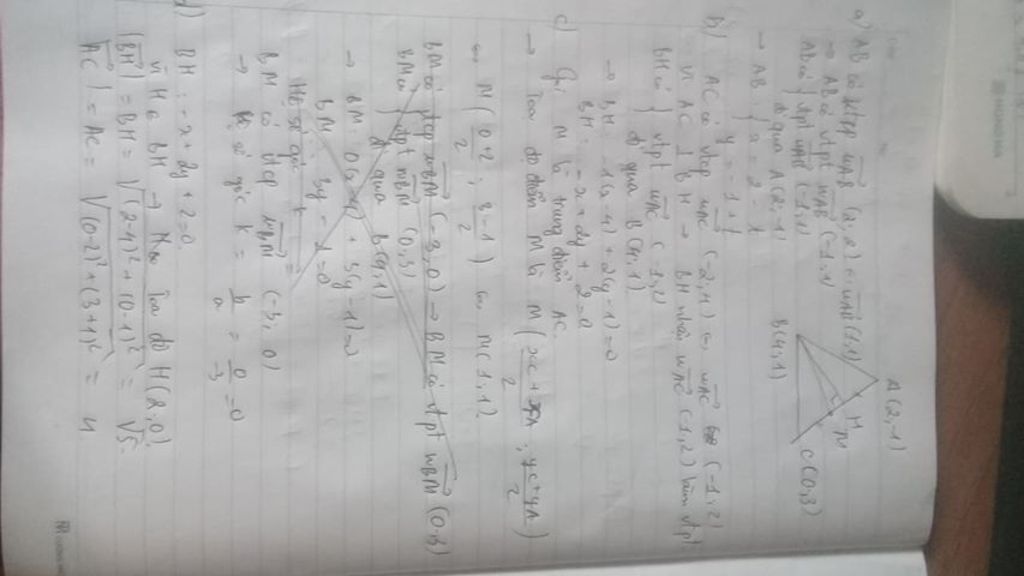 A(2,-1)
H
M
B(4,1)
C(0,3)
a) AB có vtcp uAB (2,2) = (1,1)
→ AB có vtpt nAB (-1,1)
AB có } vtpt (-1,1)
đi qua A(2,-1)
→ AB: { x = 2 + t
y = -1 + t
b) AC có vtcp uAC (-2,4) = uAC (-1,2)
Vì AC ⊥ BH → BH nhận uAC (-1,2) làm vtpt.
BH có } vtpt uAC (-1,2)
đi qua B(4,1)
→ BH: -1(x-4) + 2(y-1)=0
BH: -x+2y+2=0
c) Gọi M là trung điểm AC.
→ Toạ độ điểm M là M ( xC + xA / 2 ; yC + yA / 2 )
⇔ M ( 0+2 / 2 ; 3-1 / 2 ) ⇔ M(1,1)
BM có vtcp uBM (-3,0) → BM có vtpt nBM (0,3)
BM có } vtpt nBM (0,3)
đi qua B(4,1)
→ BM: 0(x-4) + 3(y-1)=0
BM: 3y - =0
Hệ số góc k =
BM có vtcp uBM (-3,0)
→ hệ số góc k = b/a = 0/-3 = 0
d) BH: -x+2y+2=0
Vì H ∈ BH → Toạ độ H(2,0)
|BH| = BH = √(2-4)²+(0-1)² = √5.
|AC| = AC = √(0-2)²+(3+1)² =